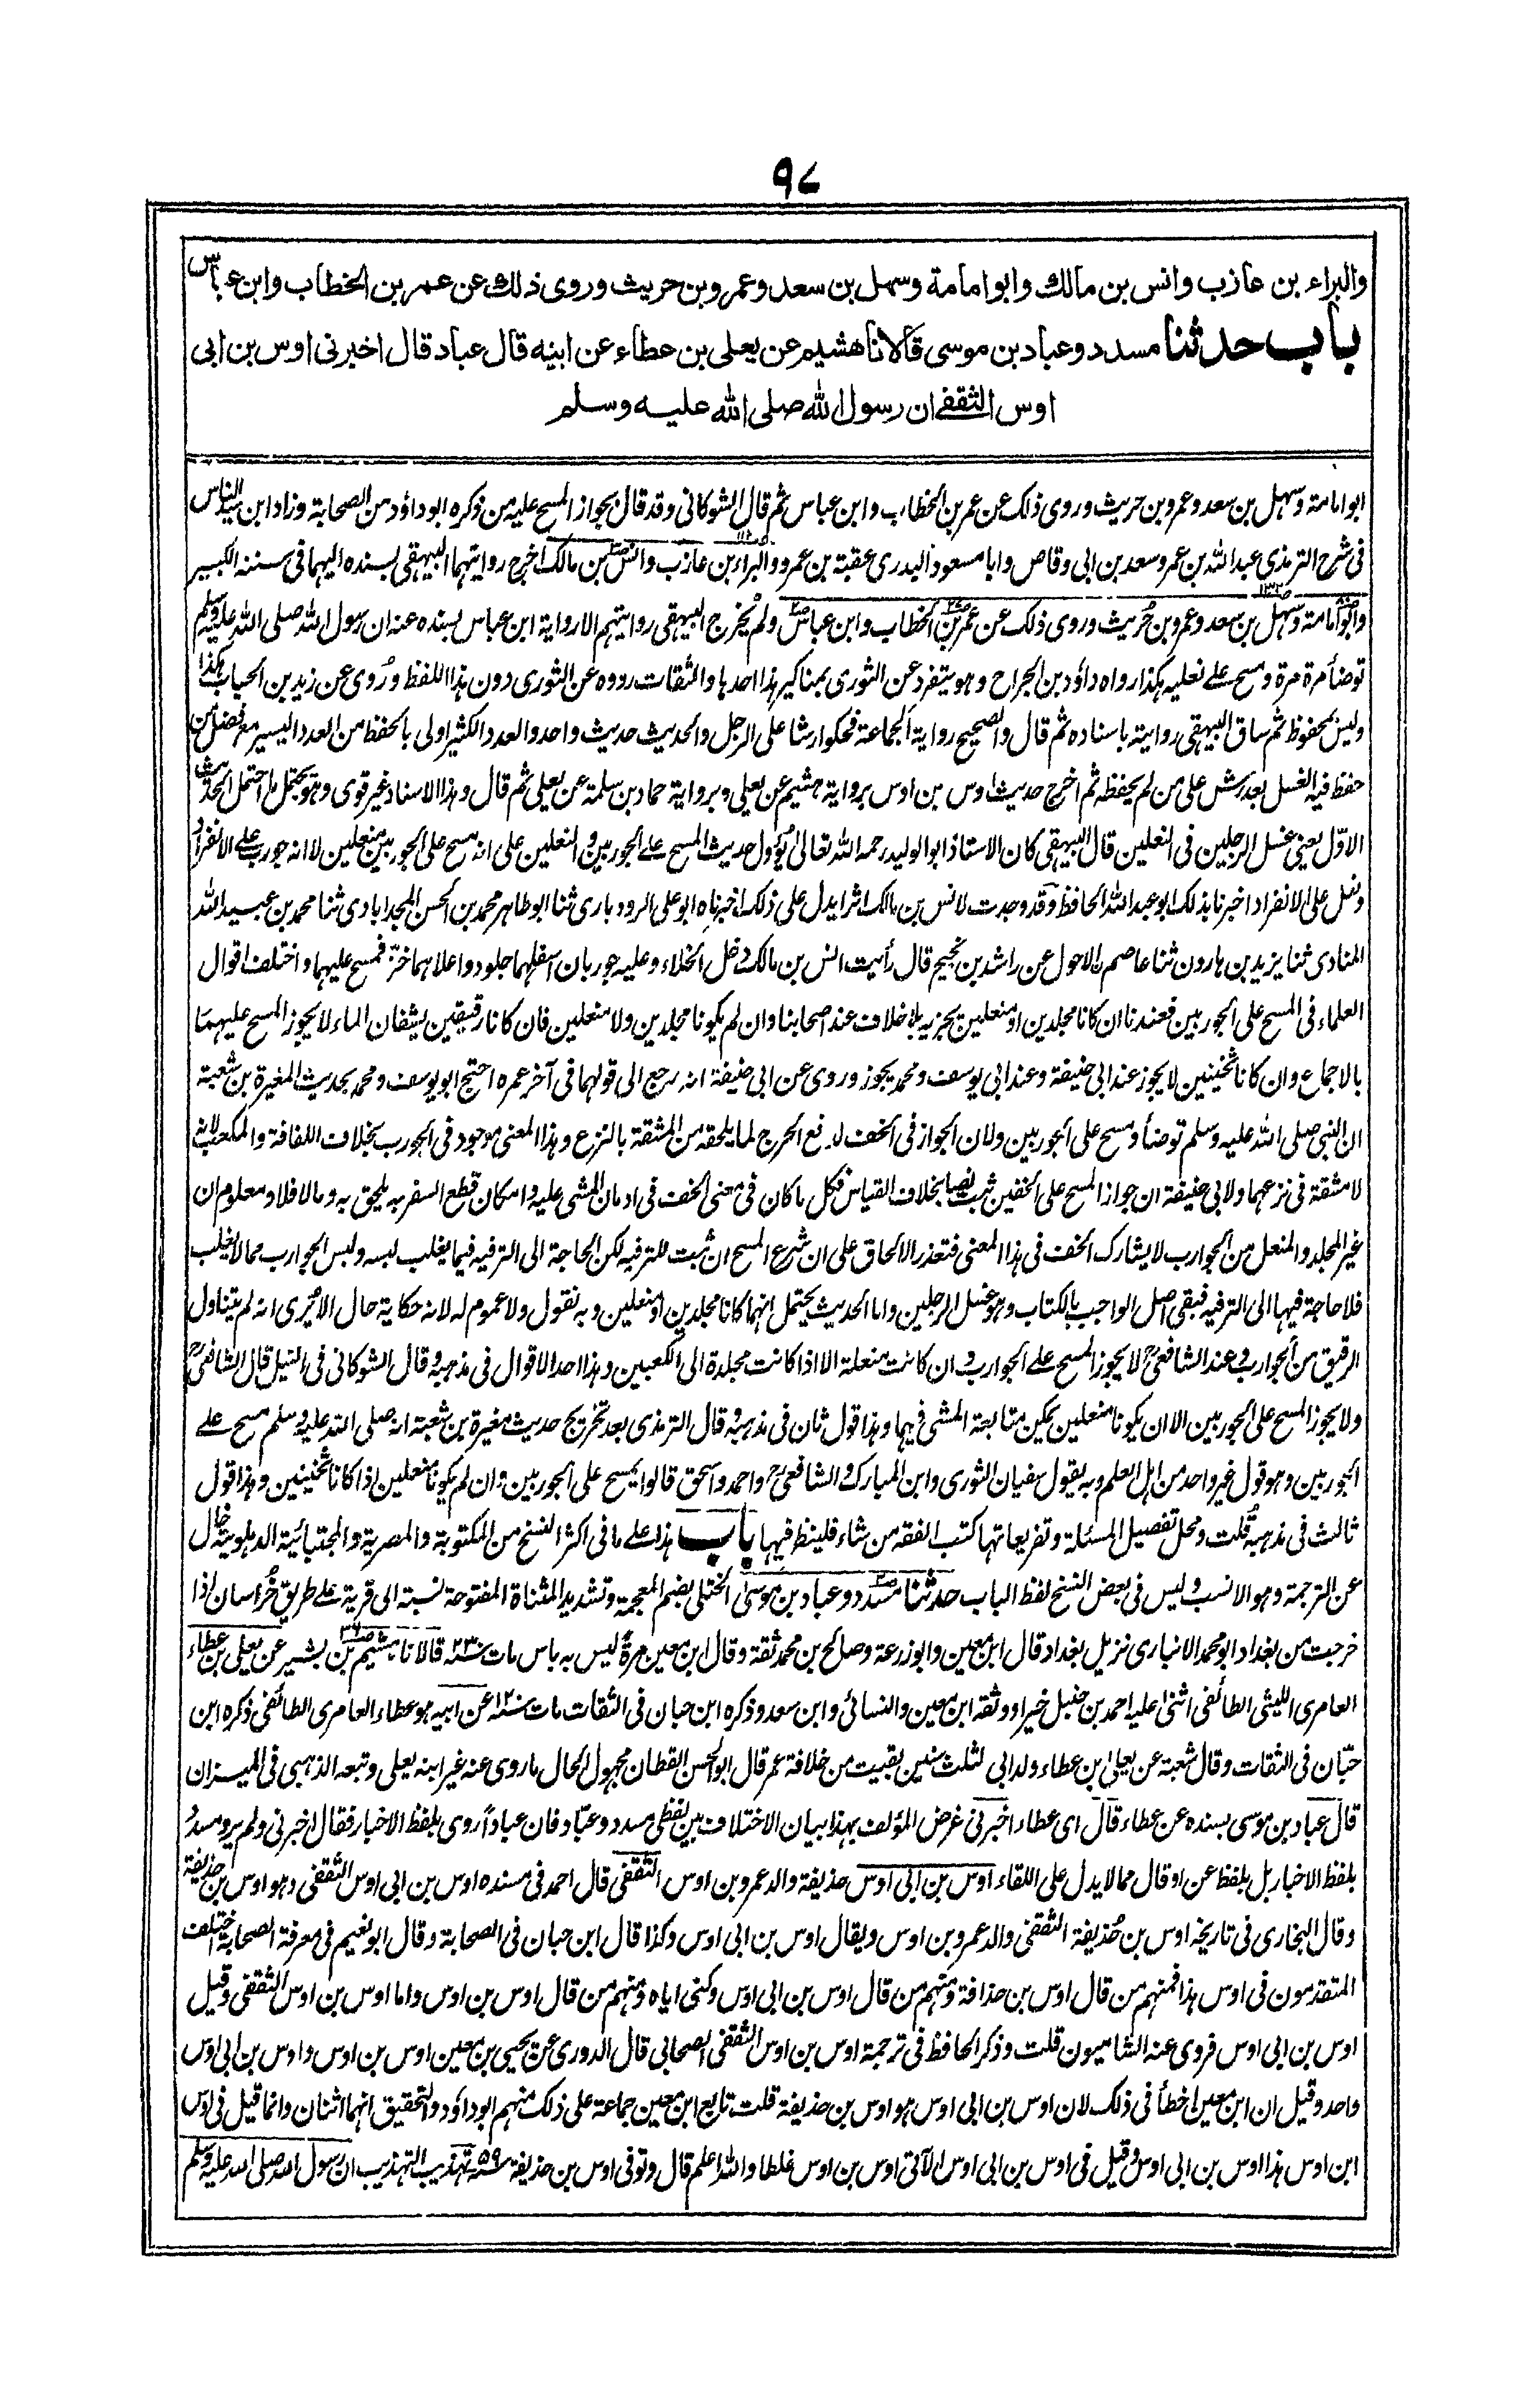 ٩٧
والبراء بن عازب وانس بن مالك وابو امامة وسهل بن سعد وعمرو بن حريث وروى ذلك عن عمر بن الخطاب وابن عباس
باب حدثنا مسدد وعباد بن موسى قالا نا هشيم عن يعلى بن عطاء عن ابيه قال عباد قال اخبرنى اوس بن ابى
اوس الثقفى ان رسول الله صلى الله عليه وسلم
ابو امامة وسهل بن سعد وعمرو بن حريث وروى ذلك عن عمر بن الخطاب وابن عباس ثم قال الشوكانى وقد قال بجواز المسح عليه من ذكره ابو داؤد من الصحابة وزاد ابن سيد الناس
فى شرح الترمذى عبد الله بن عمر وسعد بن ابى وقاص وابا مسعود البدرى عقبة بن عمرو والبراء بن عازب وانس بن مالك اخرج روايتهما البيهقى بسنده اليهما فى سننه الكبير
وابو امامة وسهل بن سعد وعمرو بن حُريث وروى ذلك عن عمر بن الخطاب وابن عباس ولم يخرج البيهقى روايتهم الا رواية ابن عباس بسنده عنه ان رسول الله صلى الله عليه وسلم
توضأ مرة مرة ومسح على نعليه هكذا رواه داؤد بن الجراح وهو يتفرد عن الثورى بمناكير هذا احدها والثقات رووه عن الثورى دون هذا اللفظ ورُوى عن زيد بن الحباب هكذا
وليس بمحفوظ ثم ساق البيهقى روايته باسناده ثم قال والصحيح رواية الجماعة فحكوا رشا على الرجل والحديث حديث واحد والعدد الكثير اولى بالحفظ من العدد اليسير مع فضل من
حفظ فيه الغسل بعد رش على من لم يحفظه ثم اخرج حديث اوس بن اوس برواية هشيم عن يعلى وبرواية حماد بن سلمة عن يعلى ثم قال وهذا الاسناد غير قوى وهو يحتمل ما احتمل الحديث
الاوّل يعنى غسل الرجلين فى النعلين قال البيهقى كان الاستاذ ابو الوليد رحمه الله تعالى يؤول حديث المسح على الجوربين والنعلين على انه مسح على الجوربين منعلين لا انه جورب على الانفراد
ونعل على الانفراد اخبرنا بذلك ابو عبد الله الحافظ وقد وجدت لانس بن مالك اثرا يدل على ذلك اخبرناه ابو على الروذبارى ثنا ابو طاهر محمد بن الحسن المجدابادى ثنا محمد بن عبيد الله
المنادى ثنا يزيد بن هارون ثنا عاصم الاحول عن راشد بن نجيح قال رأيت انس بن مالك دخل الخلاء وعليه جوربان اسفلهما جلود واعلاهما خزّ فمسح عليهما واختلف اقوال
العلماء فى المسح على الجوربين فعندنا ان كانا مجلدين او منعلين يجزيه بلا خلاف عند اصحابنا وان لم يكونا مجلدين ولا منعلين فان كانا رقيقين يشفان الماء لا يجوز المسح عليهما
بالاجماع وان كانا ثخينين لا يجوز عند ابى حنيفة وعند ابى يوسف ومحمد يجوز وروى عن ابى حنيفة انه رجع الى قولهما فى آخر عمره احتج ابو يوسف ومحمد بحديث المغيرة بن شعبة
ان النبى صلى الله عليه وسلم توضأ ومسح على الجوربين ولان الجواز فى الخف لدفع الحرج لما يلحقه من المشقة بالنزع وهذا المعنى موجود فى الجورب بخلاف اللفافة والمكعب لانه
لا مشقة فى نزعهما ولابى حنيفة ان جواز المسح على الخفين ثبت نصا بخلاف القياس فكل ما كان فى معنى الخف فى ادمان المشى عليه وامكان قطع السفر به يلحق به وما لا فلا ومعلوم ان
غير المجلد والمنعل من الجوارب لا يشارك الخف فى هذا المعنى فتعذر الالحاق على ان شرع المسح ان ثبت للترفيه لكن الحاجة الى الترفيه فيما يغلب لبسه ولبس الجوارب مما لا يغلب
فلا حاجة فيها الى الترفيه فبقى اصل الواجب بالكتاب وهو غسل الرجلين واما الحديث يحتمل انهما كانا مجلدين او منعلين وبه نقول ولا عموم له لانه حكاية حال الا يُرى انه لم يتناول
الرقيق من الجوارب وعند الشافعى لا يجوز المسح على الجوارب وان كانت منعلة الا اذا كانت مجلدة الى الكعبين وهذا احد الاقوال فى مذهبه وقال الشوكانى فى النيل قال الشافعى
ولا يجوز المسح على الجوربين الا ان يكونا منعلين يمكن متابعة المشى فيهما وهذا قول ثان فى مذهبه وقال الترمذى بعد تخريج حديث مغيرة بن شعبة انه صلى الله عليه وسلم مسح على
الجوربين وهو قول غير واحد من اهل العلم وبه يقول سفيان الثورى وابن المبارك والشافعى واحمد واسحق قالوا يمسح على الجوربين وان لم يكونا منعلين اذا كانا ثخينين وهذا قول
ثالث فى مذهبه قلت ومحل تفصيل المسئلة وتفريعاتها كتب الفقه من شاء فلينظر فيها باب هذا على ما فى اكثر النسخ من المكتوبة والمصرية والمجتبائية الدهلوية خال
عن الترجمة وهو الانسب وليس فى بعض النسخ لفظ الباب حدثنا مسدد وعباد بن موسى الختلى بضم المعجمة وتشديد المثناة المفتوحة نسبة الى قرية على طريق خُراسان اذا
خرجت من بغداد ابو محمد الانبارى نزيل بغداد قال ابن معين وابو زرعة وصالح بن محمد ثقة وقال ابن معين مرةً ليس به باس مات سنة ٢٣٠ قالا نا هشيم بن بشير عن يعلى بن عطاء
العامرى الليثى الطائفى اثنى عليه احمد بن حنبل خيرا ووثقه ابن معين والنسائى وابن سعد وذكره ابن حبان فى الثقات مات سنة ١٢٠ عن ابيه هو عطاء العامرى الطائفى ذكره ابن
حبّان فى الثقات وقال شعبة عن يعلى بن عطاء ولد ابى لثلث سنين بقيت من خلافة عمر قال ابو الحسن القطان مجهول الحال ما روى عنه غير ابنه يعلى وتبعه الذهبى فى الميزان
قال عباد بن موسى بسنده عن عطاء قال اى عطاء اخبرنى غرض المؤلف بهذا بيان الاختلاف بين لفظى مسدد وعبّاد فان عباداً روى بلفظ الاخبار فقال اخبرنى ولم يرو مسددُ
بلفظ الاخبار بل بلفظ عن او قال مما لا يدل على اللقاء اوس بن ابى اوس حذيفة والد عمرو بن اوس الثقفى قال احمد فى مسنده اوس بن ابى اوس الثقفى وهو اوس بن حذيفة
وقال البخارى فى تاريخه اوس بن حُذيفة الثقفى والد عمرو بن اوس ويقال اوس بن ابى اوس وكذا قال ابن حبان فى الصحابة وقال ابو نعيم فى معرفة الصحابة اختلف
المتقدمون فى اوس هذا فمنهم من قال اوس بن حذافة ومنهم من قال اوس بن ابى اوس وكنى اباه ومنهم من قال اوس بن اوس واما اوس بن اوس الثقفى وقيل
اوس بن ابى اوس فروى عنه الشاميون قلت وذكر الحافظ فى ترجمة اوس بن اوس الثقفى الصحابى قال الدورى عن يحيى بن معين اوس بن اوس واوس بن ابى اوس
واحد وقيل ان ابن معين اخطأ فى ذلك لان اوس بن ابى اوس هو اوس بن حذيفة قلت تابع ابن معين جماعة على ذلك منهم ابو داؤد والتحقيق انهما اثنان وانما قيل فى اوس
ابن اوس هذا اوس بن ابى اوس وقيل فى اوس بن ابى اوس الآتى اوس بن اوس غلطا والله اعلم قال وتوفى اوس بن حذيفة سنة ٥٩ تهذيب التهذيب ان رسول الله صلى الله عليه وسلم